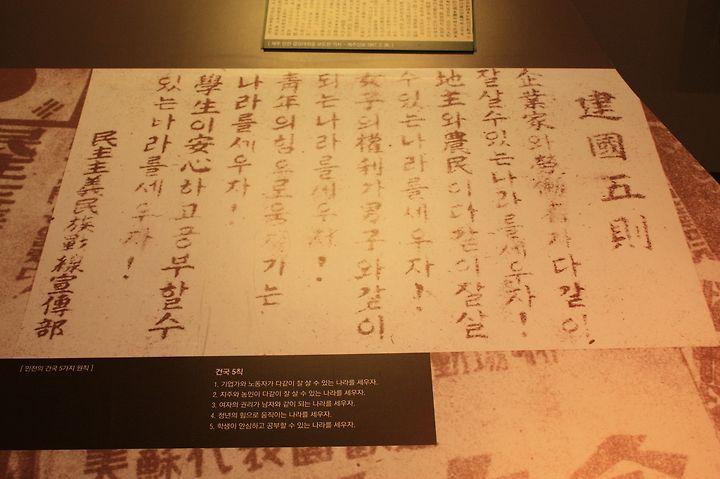 [ 제주 민전 결성대회를 보도한 기사 - 제주신보 1947. 2. 26. ]
建國五則
企業家와勞働者가다같이
잘살수있는나라를세우자!
地主와農民이다같이잘살
수있는나라를세우자!
女子의權利가男子와같이
되는나라를세우자!
靑年의힘으로
나라를세우자!
學生이安心하고공부할수
있는나라를세우자!
民主主義民族戰線宣傳部
[ 민전의 건국 5가지 원칙 ]
건국 5칙
1. 기업가와 노동자가 다같이 잘 살 수 있는 나라를 세우자.
2. 지주와 농민이 다같이 잘 살 수 있는 나라를 세우자.
3. 여자의 권리가 남자와 같이 되는 나라를 세우자.
4. 청년의 힘으로 움직이는 나라를 세우자.
5. 학생이 안심하고 공부할 수 있는 나라를 세우자.
美蘇代表歡